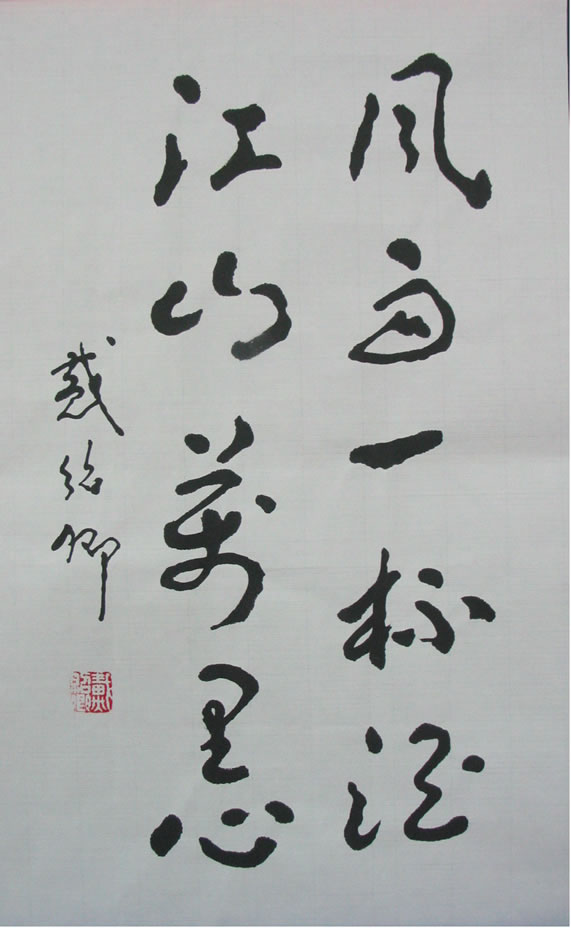 风雨一杯酒
江山萬里心
戴绍卿